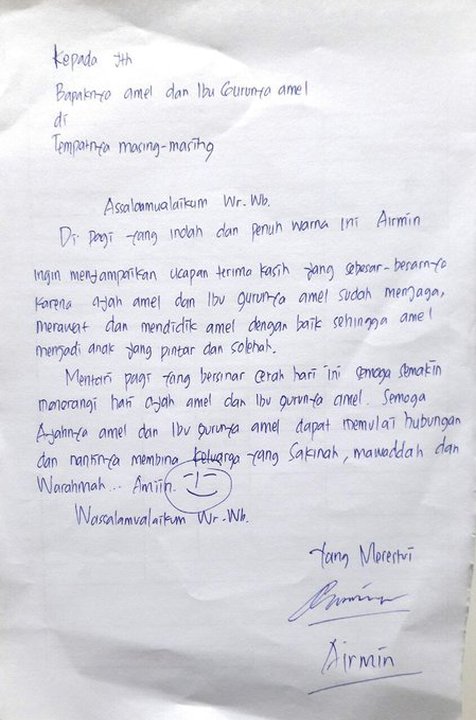 Kepada Yth
Bapaknya amel dan Ibu Gurunya amel
di
Tempatnya masing-masing
Assalaamualaikum Wr. Wb.
Di pagi yang indah dan penuh warna ini Airmin
ingin menyampaikan ucapan terima kasih yang sebesar-besarnya
karena ayah amel dan Ibu gurunya amel sudah menjaga,
merawat dan mendidik amel dengan baik sehingga amel
menjadi anak yang pintar dan solehah.
Mentari pagi yang bersinar cerah hari ini semoga semakin
menerangi hari ayah amel dan Ibu gurunya amel. Semoga
Ayahnya amel dan Ibu gurunya amel dapat memulai hubungan
dan nantinya membina keluarga yang Sakinah, mawaddah dan
Warahmah... Amiin.
Wassalamualaikum Wr. Wb.
Yang Merestui
Airmin